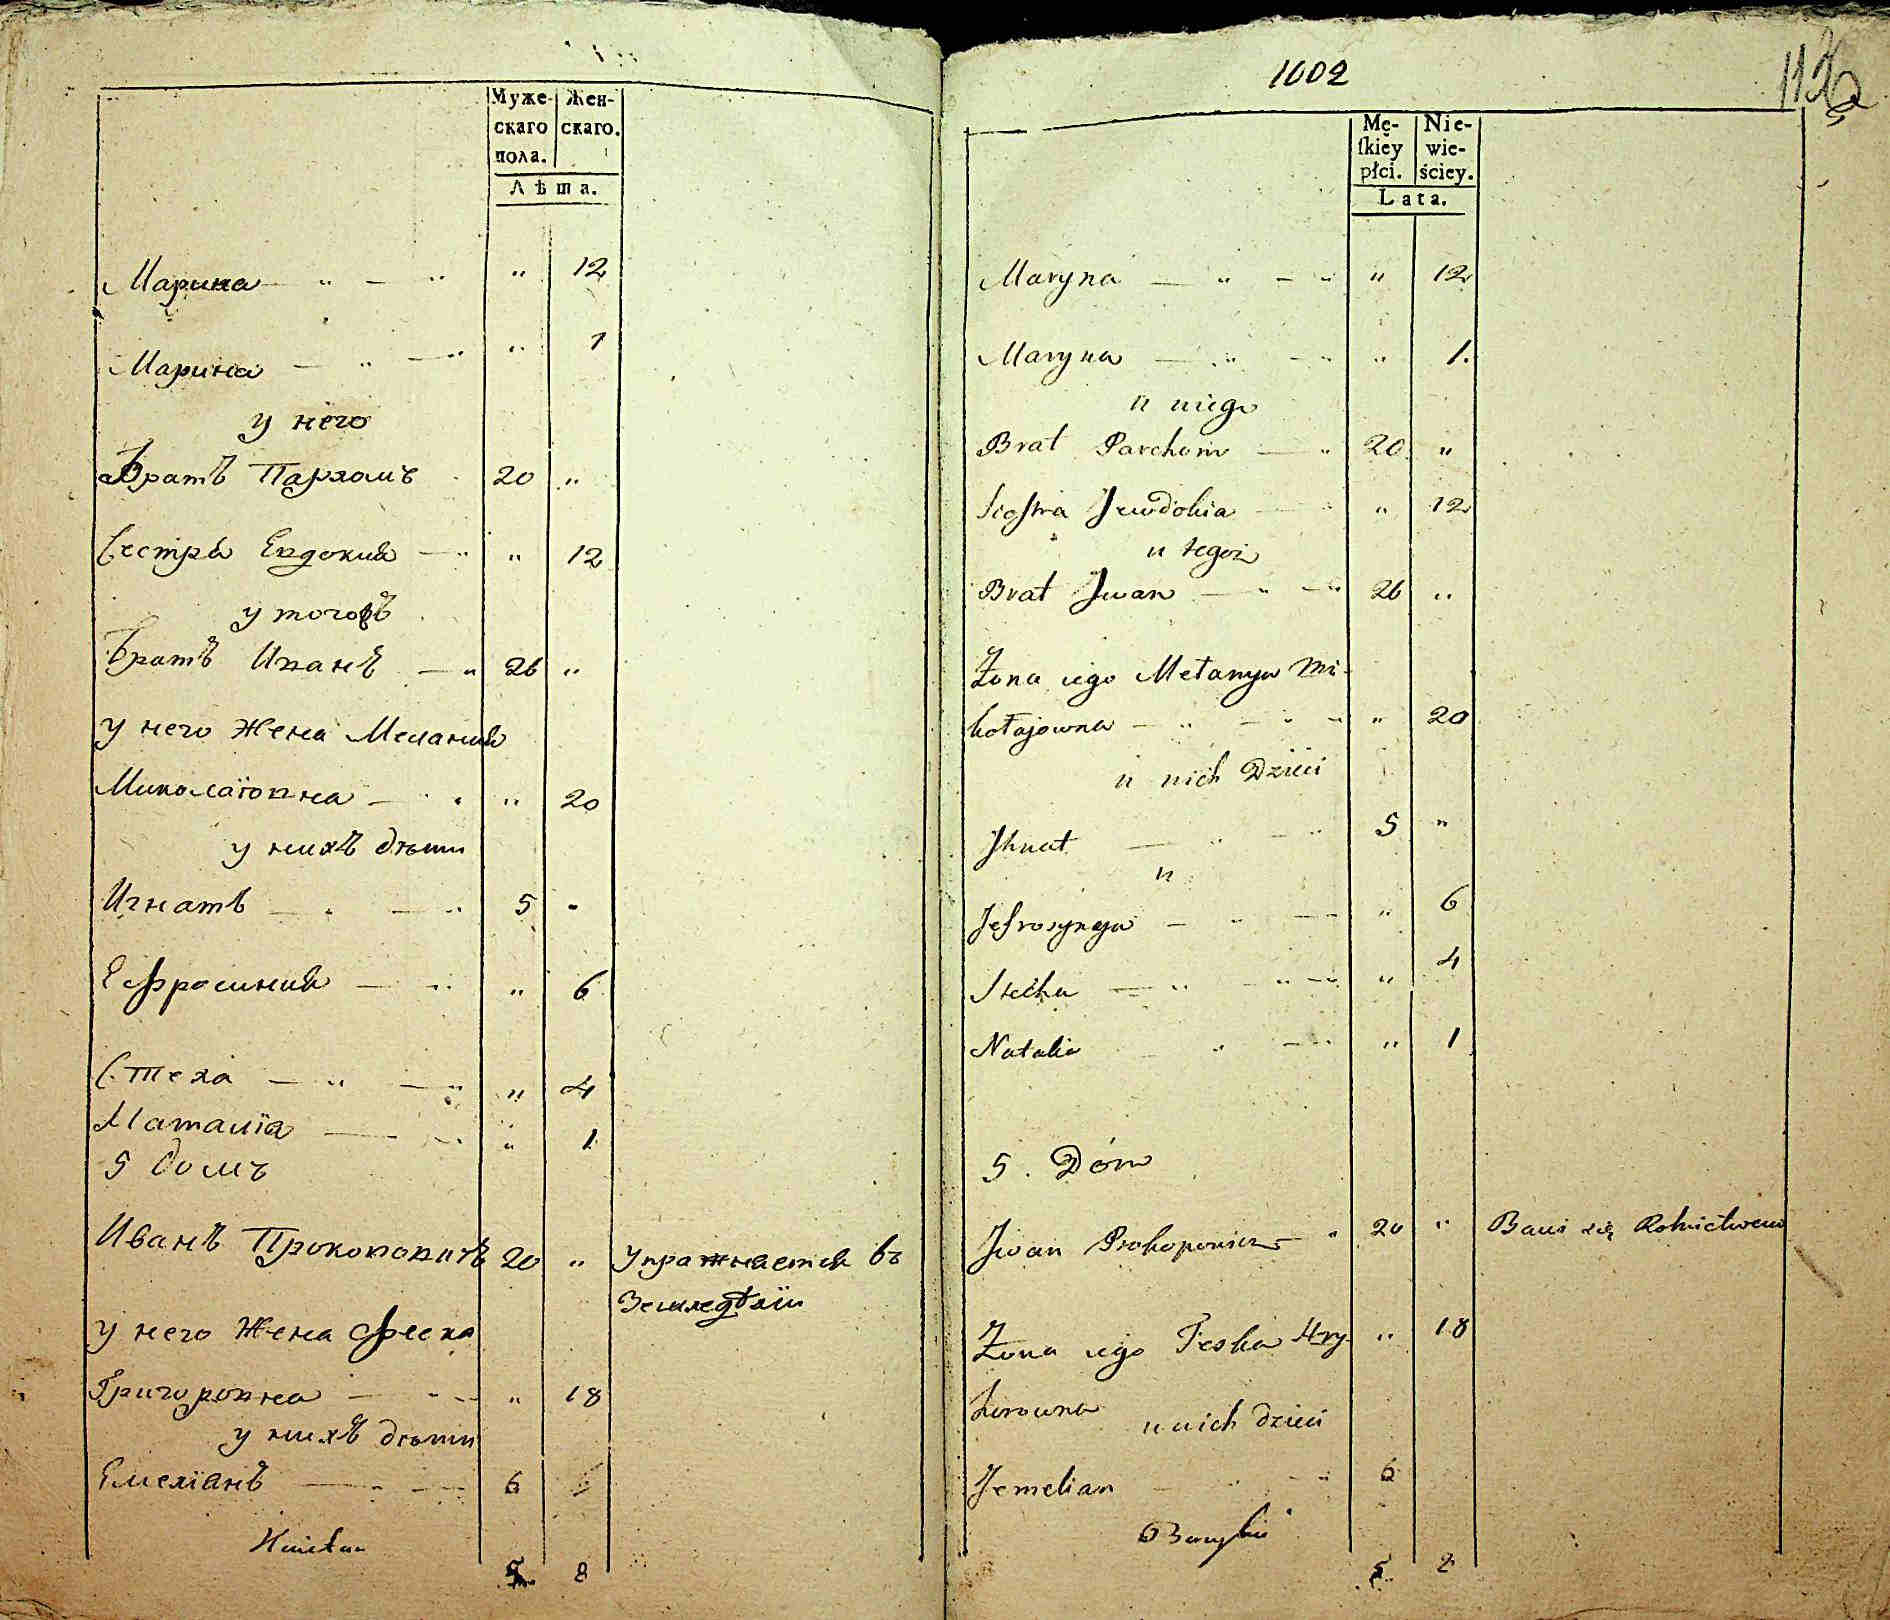 Муже- Жен-
скаго скаго.
пола.
Лѣта.
Марина — „ — „ „ 12
Марина — „ — „ „ 1
у него
Братъ Пархомъ 20 „
Сестра Евдокия — „ „ 12
у тогожъ
Братъ Иванъ — „ 26 „
у него Жена Мелания
Миколаіовна — „ „ 20
у нихъ дѣти
Игнатъ — „ — „ 5 „
Ефросиния — „ „ 6
Стеха — „ — „ „ 4
Наталіа — „ „ 1
5 домъ
Иванъ Прокоповичъ 20 „ Упражняется въ
Земледѣліи
у него Жена Феска
Григоровна — „ „ 18
у нихъ дѣти
Емеліанъ — „ — 6
5 8
1002
Mę- Nie-
ſkiey wie-
płci. ściey.
Lata.
Maryna — „ — „ „ 12
Maryna — „ — „ „ 1.
u niego
Brat Parchom — „ 20 „
Siostra Jewdokia — „ 12
u tegoż
Brat Jwan — „ — „ 26 „
Żona iego Mełanya Mi-
kołajowna — „ — „ „ 20
u nich Dzieci
Jhnat — „ — „ 5 „
u
Jefrosynya — „ — „ 6
Stecha — „ — „ „ 4
Natalia „ — „ „ 1
5. Dóm
Jwan Prokopowicz — „ 20 „ Bawi się Rolnictwem
Żona iego Feska Hry- „ 18
horowna
u nich dzieci
Jemelian — „ — „ 6
5 8